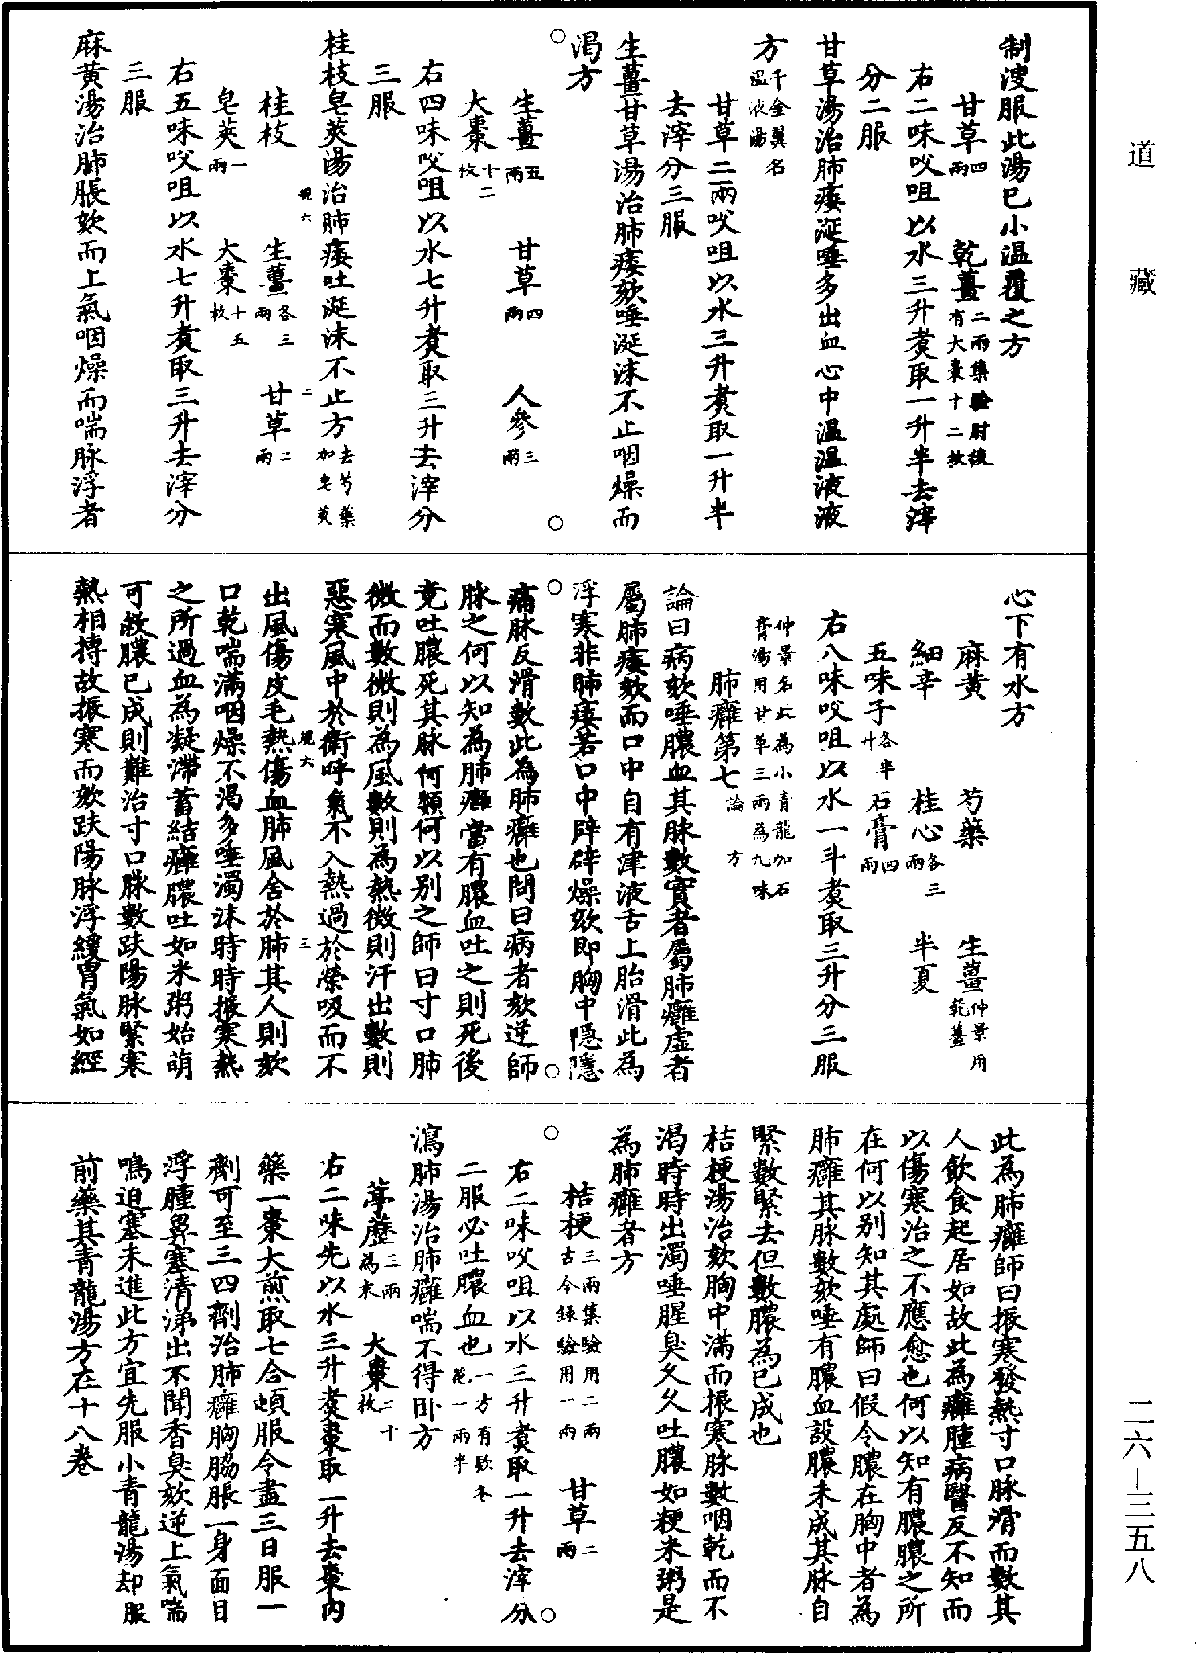 制溲服此湯已小溫覆之方
甘草四兩 乾薑二兩集驗肘後有大棗十二枚
右二味㕮咀以水三升煮取一升半去滓
分二服
甘草湯治肺痿涎唾多出血心中溫溫液液
方千金翼名溫液湯
甘草二兩㕮咀以水三升煮取一升半
去滓分三服
生薑甘草湯治肺痿欬唾涎沫不止咽燥而
渴方
生薑五兩 甘草四兩 人參三兩
大棗十二枚
右四味㕮咀以水七升煮取三升去滓分
三服
桂枝皂莢湯治肺痿吐涎沫不止方去芍藥加皂莢
桂枝 生薑各三兩 甘草二兩
皂莢一兩 大棗十五枚
右五味㕮咀以水七升煮取三升去滓分
三服
麻黃湯治肺脹欬而上氣咽燥而喘脉浮者
心下有水方
麻黃 芍藥 生薑仲景用乾薑
細辛 桂心各三兩 半夏
五味子各半升 石膏四兩
右八味㕮咀以水一斗煮取三升分三服
仲景名此為小青龍加石膏湯用甘草三兩為九味
肺癰第七論 方
論曰病欬唾膿血其脉數實者屬肺癰虛者
屬肺痿欬而口中自有津液舌上胎滑此為
浮寒非肺痿若口中辟辟燥欬即胸中隱隱
痛脉反滑數此為肺癰也問曰病者欬逆師
脉之何以知為肺癰當有膿血吐之則死後
竟吐膿死其脉何類何以別之師曰寸口肺
微而數微則為風數則為熱微則汗出數則
惡寒風中於衛呼氣不入熱過於榮吸而不
出風傷皮毛熱傷血肺風舍於肺其人則欬
口乾喘滿咽燥不渴多唾濁沫時時振寒熱
之所過血為凝滯蓄結癰膿吐如米粥始萌
可救膿已成則難治寸口脉數趺陽脉緊寒
熱相搏故振寒而欬趺陽脉浮緩胃氣如經
此為肺癰師曰振寒發熱寸口脉滑而數其
人飲食起居如故此為癰腫病醫反不知而
以傷寒治之不應愈也何以知有膿膿之所
在何以別知其處師曰假令膿在胸中者為
肺癰其脉數欬唾有膿血設膿未成其脉自
緊數緊去但數膿為已成也
桔梗湯治欬胸中滿而振寒脉數咽乾而不
渴時時出濁唾腥臭久久吐膿如粳米粥是
為肺癰者方
桔梗三兩集驗用二兩古今錄驗用一兩 甘草二兩
右二味㕮咀以水三升煮取一升去滓分
二服必吐膿血也一方有欵冬花一兩半
瀉肺湯治肺癰喘不得臥方
葶藶三兩為末 大棗二十枚
右二味先以水三升煮棗取一升去棗內
藥一棗大煎取七合頓服令盡三日服一
劑可至三四劑治肺癰胸脇脹一身面目
浮腫鼻塞清涕出不聞香臭欬逆上氣喘
鳴迫塞未進此方宜先服小青龍湯却服
前藥其青龍湯方在十八卷
道藏
二六—三五八